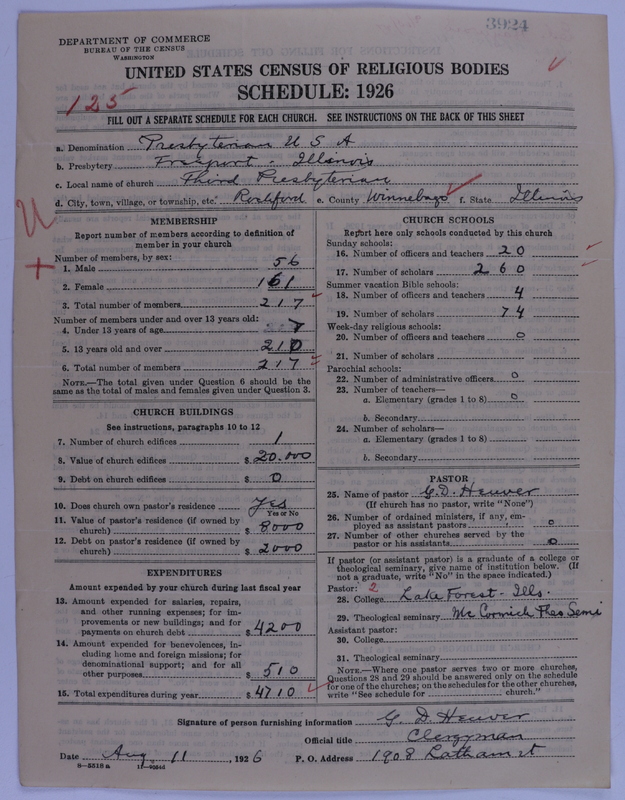 3924
DEPARTMENT OF COMMERCE
BUREAU OF THE CENSUS
WASHINGTON
UNITED STATES CENSUS OF RELIGIOUS BODIES
SCHEDULE: 1926
125
FILL OUT A SEPARATE SCHEDULE FOR EACH CHURCH. SEE INSTRUCTIONS ON THE BACK OF THIS SHEET
a. Denomination Presbyterian U S A
b. Presbytery Freeport - Illinois
c. Local name of church Third Presbyterian
d. City, town, village, or township, etc. Rockford e. County Winnebago f. State Illinois
MEMBERSHIP
Report number of members according to definition of
member in your church
Number of members, by sex:
1. Male 56
2. Female 161
3. Total number of members 217
Number of members under and over 13 years old:
4. Under 13 years of age 7
5. 13 years old and over 210
6. Total number of members 217
NOTE.—The total given under Question 6 should be
same as the total of males and females given under Question 3.
CHURCH BUILDINGS
See instructions, paragraphs 10 to 12
7. Number of church edifices 1
8. Value of church edifices $ 20.000
9. Debt on church edifices $ 0
10. Does church own pastor's residence Yes
Yes or No
11. Value of pastor's residence (if owned by
church) $ 8000
12. Debt on pastor's residence (if owned by
church) $ 2000
EXPENDITURES
Amount expended by your church during last fiscal year
13. Amount expended for salaries, repairs,
and other running expenses; for im-
provements or new buildings; and for
payments on church debt $ 4200
14. Amount expended for benevolences, in-
cluding home and foreign missions; for
denominational support; and for all
other purposes $ 510
15. Total expenditures during year $ 4710
CHURCH SCHOOLS
Report here only schools conducted by this church
Sunday schools:
16. Number of officers and teachers 20
17. Number of scholars 260
Summer vacation Bible schools:
18. Number of officers and teachers 4
19. Number of scholars 74
Week-day religious schools:
20. Number of officers and teachers 0
21. Number of scholars
Parochial schools:
22. Number of administrative officers 0
23. Number of teachers—
a. Elementary (grades 1 to 8) 0
b. Secondary
24. Number of scholars—
a. Elementary (grades 1 to 8)
b. Secondary
PASTOR
25. Name of pastor G. D. Heuver
(If church has no pastor, write "None")
26. Number of ordained ministers, if any, em-
ployed as assistant pastors 0
27. Number of other churches served by the
pastor or his assistants 0
If pastor (or assistant pastor) is a graduate of a college or
theological seminary, give name of institution below. (If
not a graduate, write "No" in the space indicated.)
Pastor: 2
28. College Lake Forest - Ills.
29. Theological seminary Mc Cormick Semi
Assistant pastor:
30. College
31. Theological seminary
NOTE.—Where one pastor serves two or more churches,
Questions 28 and 29 should be answered only on the schedule
for one of the churches; on the schedules for the other churches,
write "See schedule for church."
Signature of person furnishing information G. D. Heuver
Official title Clergyman
Date Aug. 11, 1926 P. O. Address 1908 Latham st
8-5518a